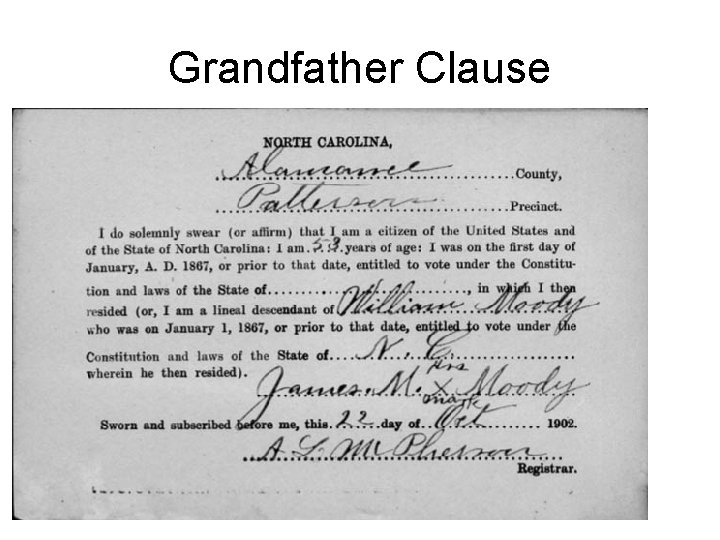 Grandfather Clause
NORTH CAROLINA,
Alamance County,
Patterson Precinct.
I do solemnly swear (or affirm) that I am a citizen of the United States and
of the State of North Carolina: I am 53 years of age: I was on the first day of
January, A. D. 1867, or prior to that date, entitled to vote under the Constitu-
tion and laws of the State of...................................., in which I then
resided (or, I am a lineal descendant of William Moody
who was on January 1, 1867, or prior to that date, entitled to vote under the
Constitution and laws of the State of.... N. C.
wherein he then resided).
his
James. M. X Moody
mark
Sworn and subscribed before me, this 22 day of Oct 1902.
A. L. McPherson
Registrar.